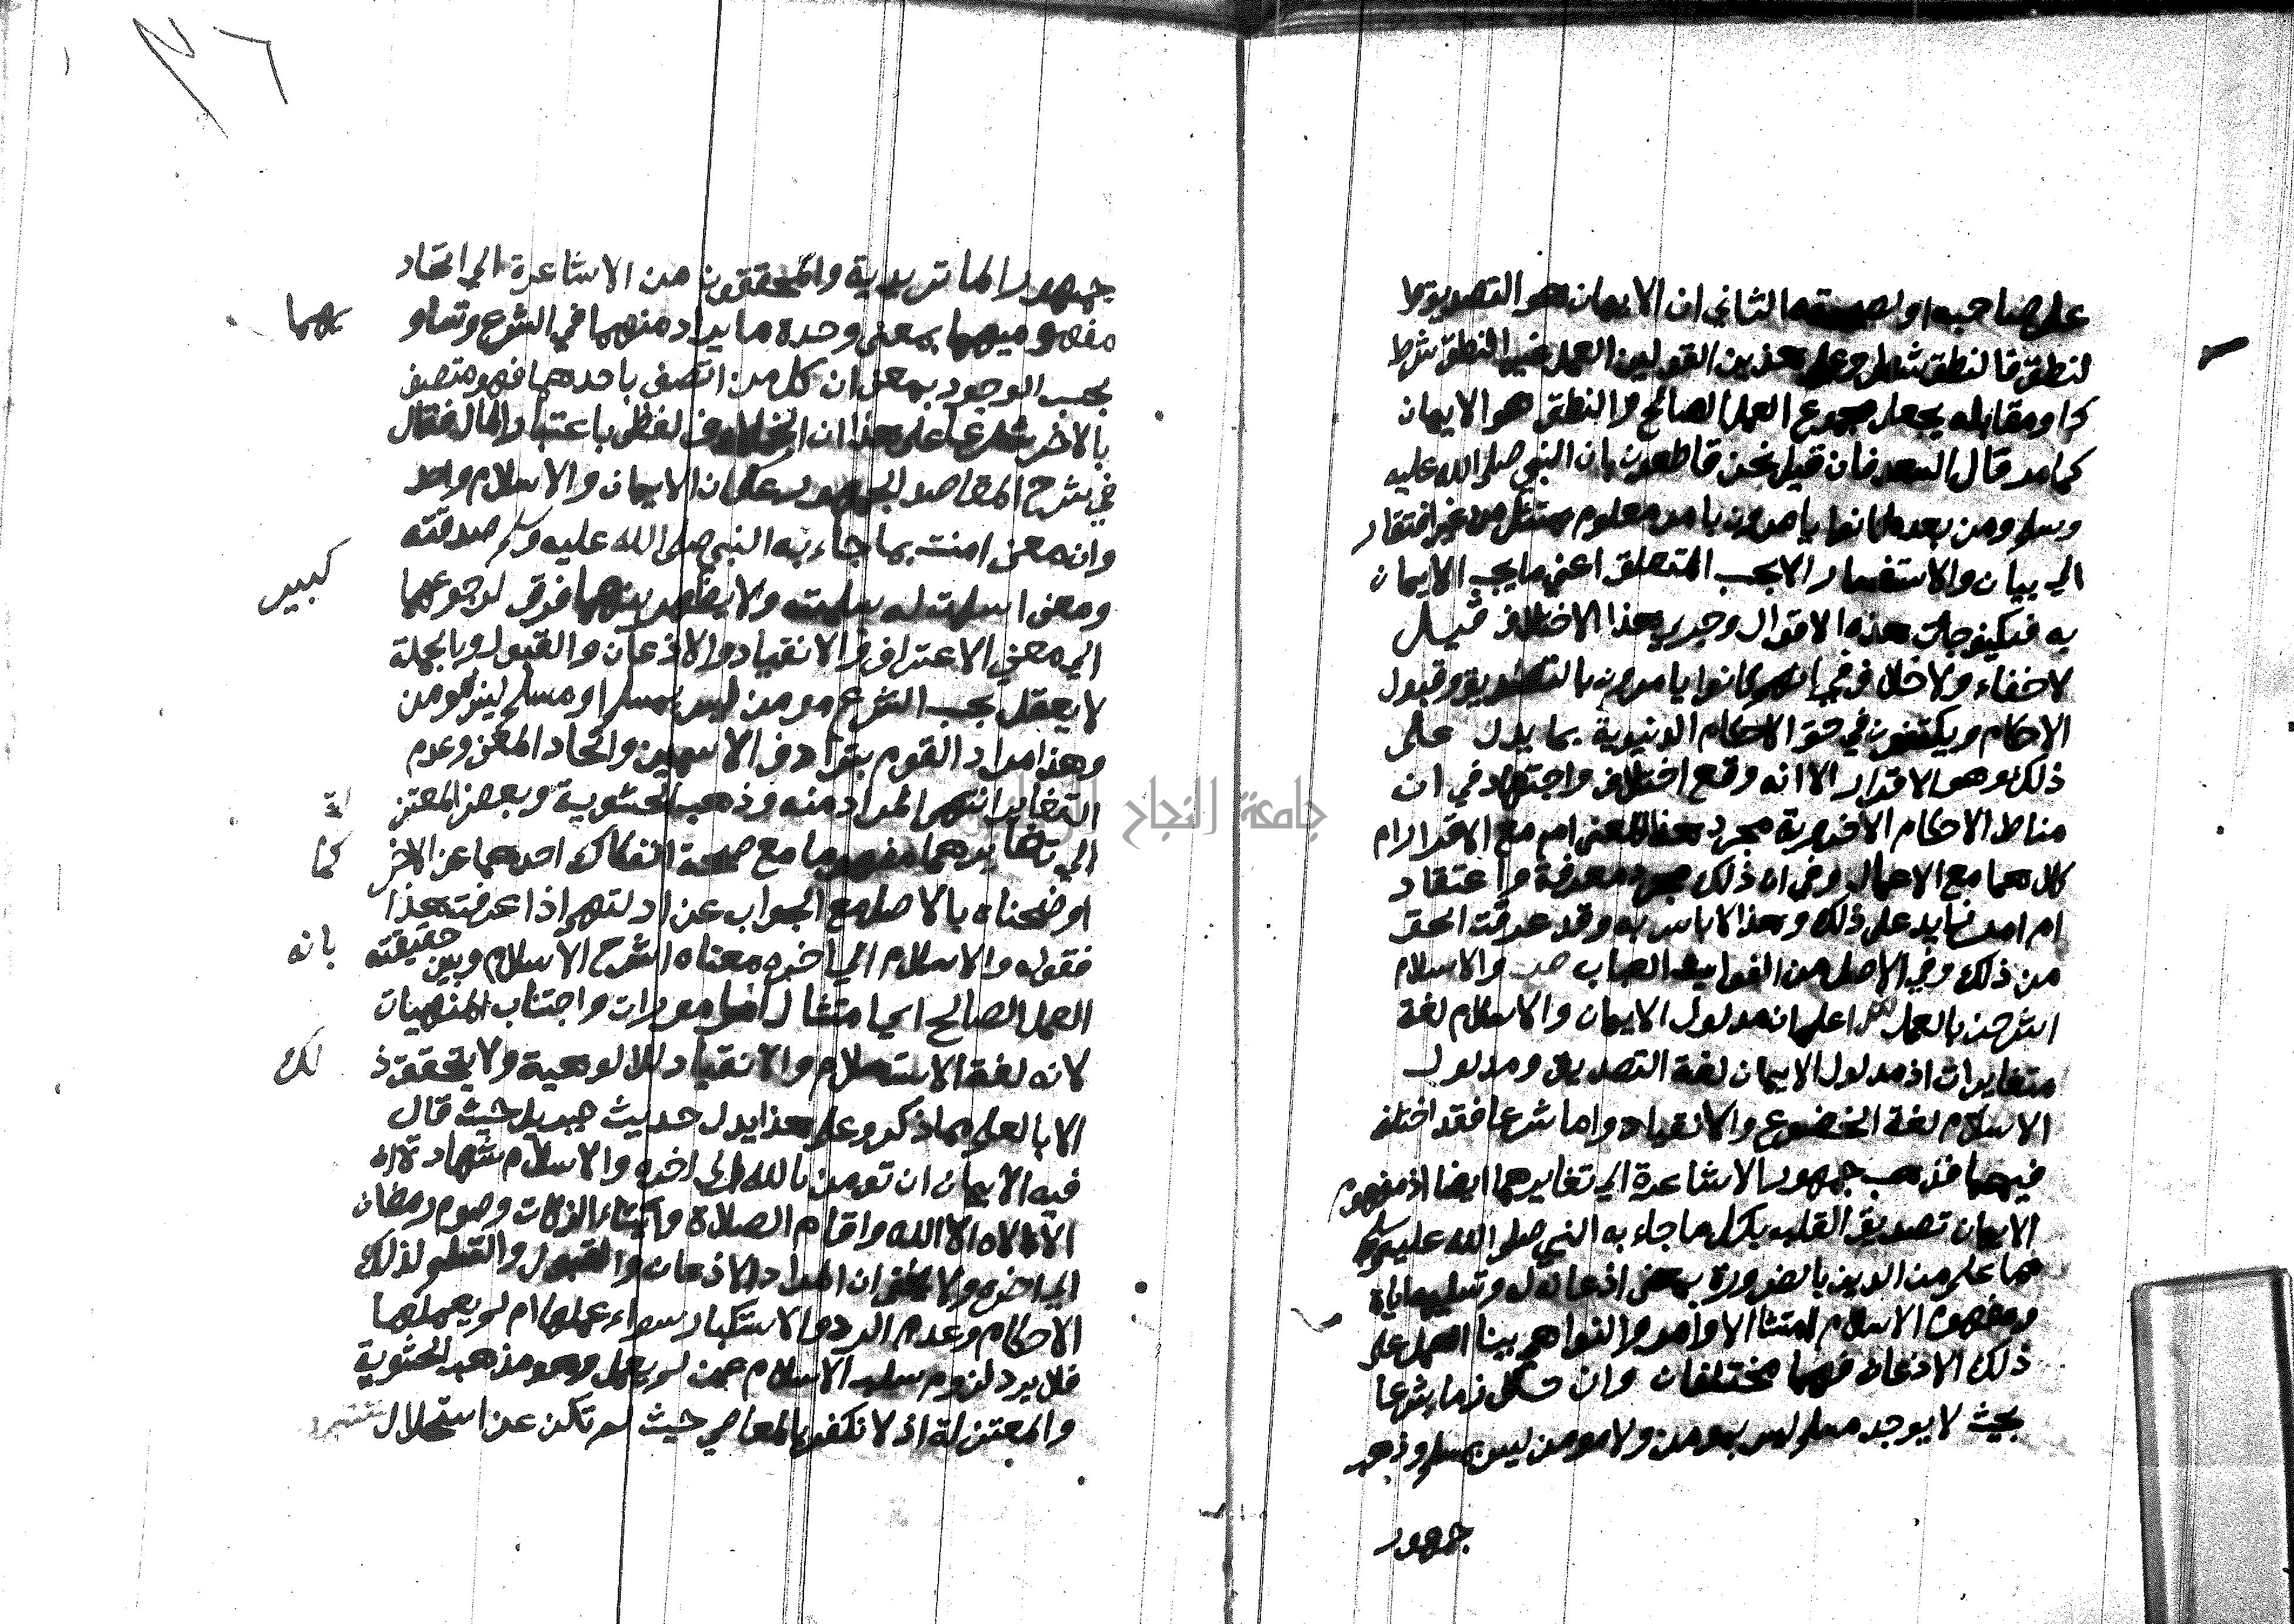 على صاحبه او لصدقهما الثاني ان الايمان هو التصديق
لنطق فالنطق شطر وعلى هذين القولين العمل غير النطق شرط
كما ومقابله يجعل مجموع العمل الصالح والنطق هو الايمان
كما مر قال السعد فان قيل نحن قاطعون بان النبي صلى الله عليه
وسلم ومن بعده كانوا يامرون بامر معلوم ممتثل من غير افتقار
الى بيان والاستفسار الا بحسب المتعلق اعني ما يجب الايمان
به فكيف جات هذه الاقوال وجرى هذا الاختلاف قيل
لا خفاء ولا خلاف في انهم كانوا يامرون بالتصديق وقبول
الاحكام ويكتفون في حق الاحكام الدنيوية بما يدل على
ذلك وهو الاقرار الا انه وقع اختلاف واجتهاد في ان
مناط الاحكام الاخروية مجرد هذا المعنى ام مع الاقرار ام
كلاهما مع الاعمال وفي ان ذلك مجرد معرفة واعتقاد
ام امر زايد على ذلك وهذا لا باس به وقد عرفت الحق
من ذلك وفي الاصل من الفوايد العجاب ص والاسلام
اشرحن بالعمل ش اعلم ان مدلول الايمان والاسلام لغة
متغايران اذ مدلول الايمان لغة التصديق ومدلول
الاسلام لغة الخضوع والانقياد واما شرعا فقد اختلف
فيهما فذهب جمهور الاشاعرة الي تغايرهما ايضا اذ مفهوم
الايمان تصديق القلب بكل ما جاء به النبي صلى الله عليه وسلم
مما علم من الدين بالضرورة بمعنى اذعانه له وتسليمه اياه
ومفهوم الاسلام امتثال الاوامر والنواهي ببنا العمل على
ذلك الاذعان فهما مختلفان وان تلازما شرعا
بحيث لا يوجد مسلم ليس بمومن ولا مومن ليس بمسلم وذهب
جمهور
جمهور الماتريدية والمحققون من الاشاعرة الي اتحاد
مفهوميهما بمعنى وحدة ما يراد منهما في الشرع وتساو يهما
بحسب الوجود بمعنى ان كل من اتصف باحدهما فهو متصف
بالاخر شرعا على هذا ان الخلاف لفظي باعتبار المال فقال
في شرح المقاصد الجمهور على ان الايمان والاسلام واحد
وان معنى امنت بما جاء به النبي صلى الله عليه وسلم صدقته
ومعنى اسلمت له سلمت ولا يظهر بينهما فرق كبير لرجوعهما
الي معنى الاعتراف والانقياد والاذعان والقبول وبالجملة
لا يعقل بحسب الشرع مومن ليس بمسلم او مسلم ليس بمومن
وهذا مراد القوم بترادف الاسمين واتحاد المعنى وعدم
التغاير انتهى المراد منه وذهب الحشوية وبعض المعتز لة
الي تغايرهما مفهوما مع صحة انفكاك احدهما عن الاخر كما
اوضحناه بالاصل مع الجواب عن ادلتهم اذا عرفت هذا
فقوله والاسلام الي اخره معناه اشرح الاسلام وبين حقيقته بانه
العمل الصالح اي امتثال المامورات واجتناب المنهيات
لانه لغة الاستسلام والانقياد للالوهية ولا يتحقق ذ لك
الا بالعمل بما ذكر وعلى هذا يدل حديث جبريل حيث قال
فيه الايمان ان تومن بالله الى اخره والاسلام شهادة ان
لا اله الا الله واقام الصلاة وايتاء الزكات وصوم رمضان
الي اخره ولا يخفى ان المراد الاذعان والقبول والتسليم لذلك
الاحكام وعدم الرد والاستكبار سواء عملها ام لم يعملها
فلا يرد لزوم سلب الاسلام عمن لم يعمل وهو مذهب الحشوية
والمعتزلة اذ لا نكفر بالمعاصي حيث لم تكن عن استحلال
جامعة النجاح